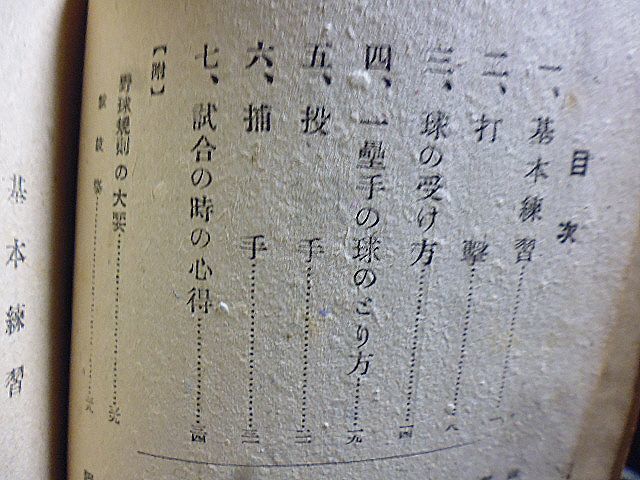 目次
一、基本練習………一
二、打擊………八
三、球の受け方………一四
四、一壘手の球のとり方………一九
五、投手………
六、捕手………
七、試合の時の心得………
【附】
野球規則の大要………
基本練習